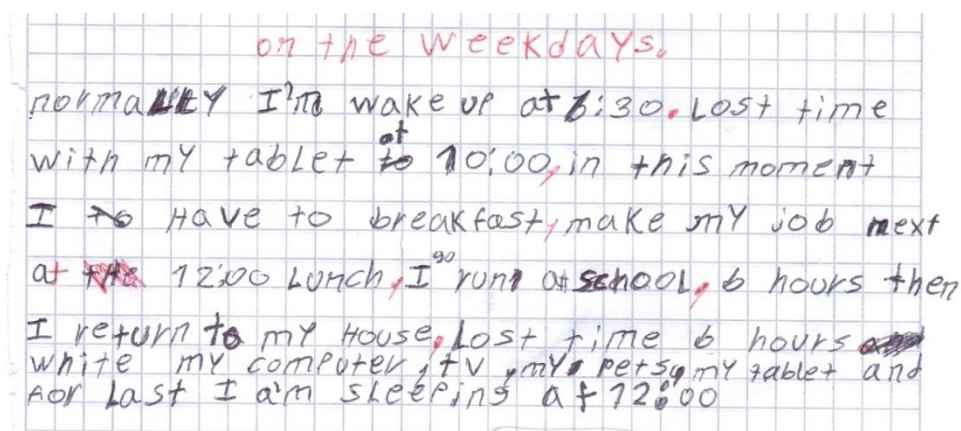 on the weekdays.
normally I'm wake up at 6:30. Lost time
with my tablet at 10:00, in this moment
I Have to breakfast, make my job next
at 12:00 Lunch, I go run at school, 6 hours then
I return to my House, Lost time 6 hours
white my computer, tv, my pets, my tablet and
For Last I a'm sleeping at 12:00